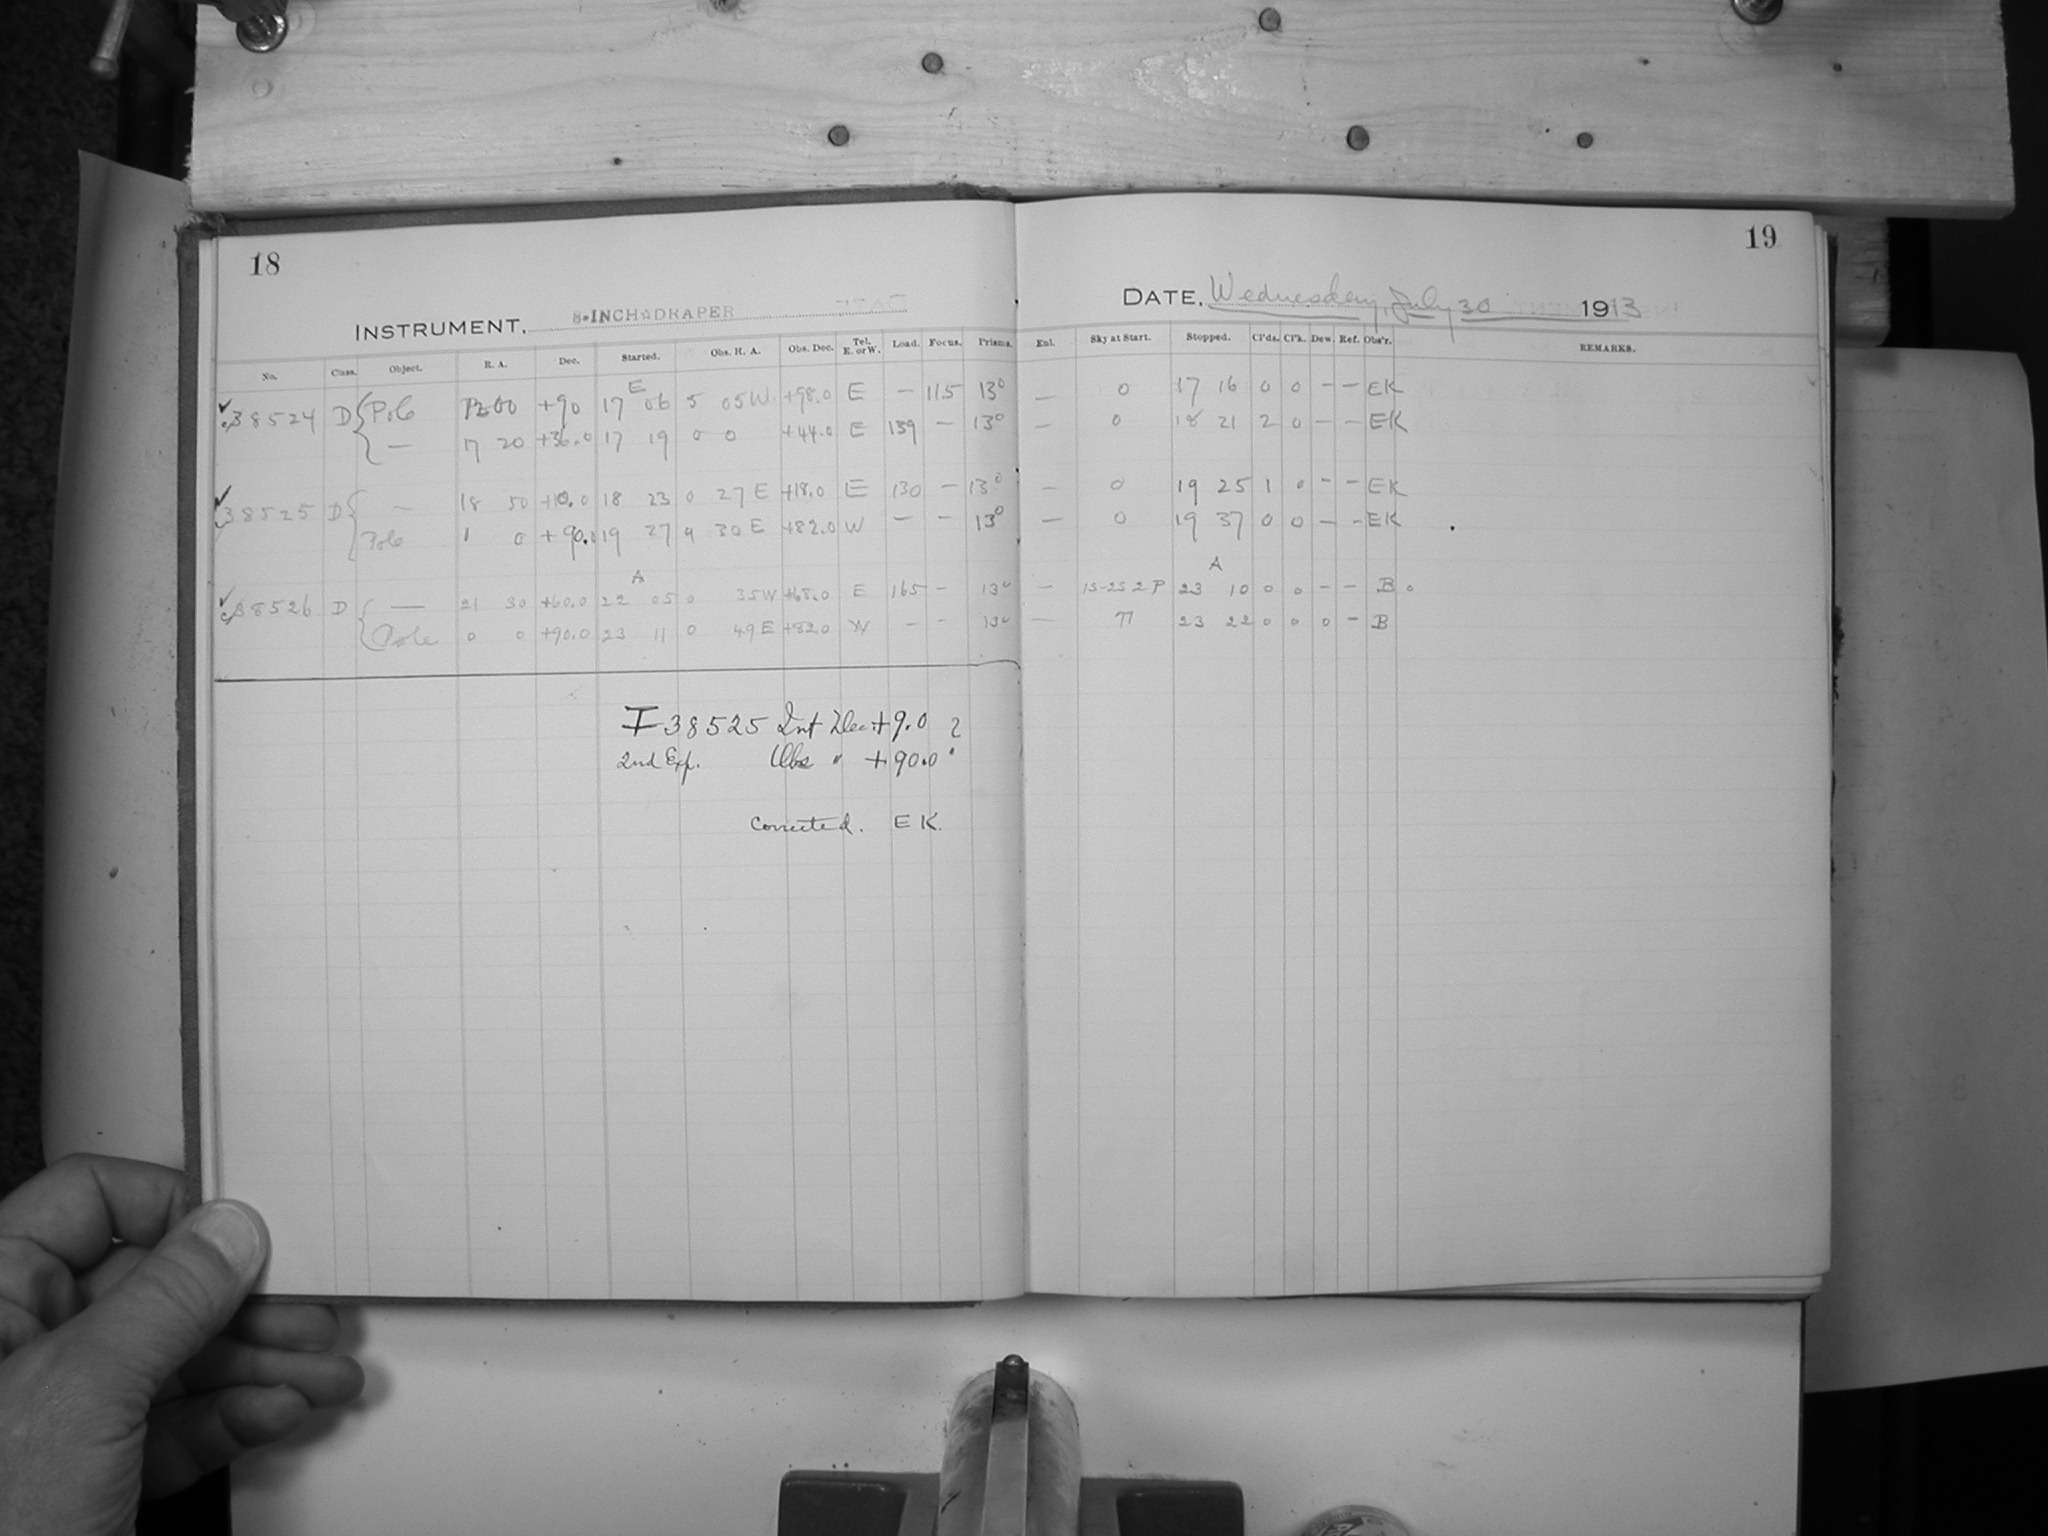 18
19
INSTRUMENT. 8-INCH DRAPER
DATE. Wednesday, July 30 1913
No. Class. Object. R. A. Dec. Started. Obs. H. A. Obs. Dec. Tel. E. or W. Load. Focus. Prisms. Enl. Sky at Start. Stopped. Cl'ds. Cl'k. Dew. Ref. Obs'r. REMARKS.
E
38524 D Pole +90 17 06 5 05 W +98.0 E — 115 13° — 0 17 16 0 0 – – EK
— 17 20 +36.0 17 19 0 0 +44.0 E 139 – 13° — 0 18 21 2 0 – – EK
38525 D — 18 50 +10.0 18 23 0 27 E +18.0 E 130 – 13° — 0 19 25 1 0 – – EK
Pole 1 0 +90.0 19 27 4 30 E +82.0 W — — 13° — 0 19 37 0 0 – – EK
A A
38526 D — 21 30 +60.0 22 05 0 35 W +68.0 E 165 – 13° — 15-25 2 P 23 10 0 0 – – B
Pole 0 0 +90.0 23 11 0 49 E +82.0 W – – 13° — 23 22 0 0 0 – B
I 38525 Int Dec. +9.0 ?
2nd Exp. Obs " +90.0
Corrected. EK.